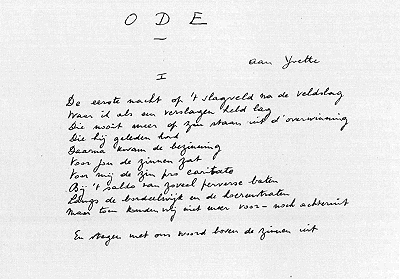 ODE
aan Yvette
I
De eerste nacht op 't slagveld na de veldslag
Waar id als een verslagen held lag
Die nooit meer op zou staan uit d'overwinning
Die hij geleden had
Daarna kwam de bezinning
Voor jou de zinnen zat
Voor mij de zin pro caritate
Bij 't saldo van zoveel perverse baten
Langs de bordeelwijk en de hoerenstraten
Maar toen konden wij niet meer voor- noch achteruit
En stegen met ons woord boven de zinnen uit